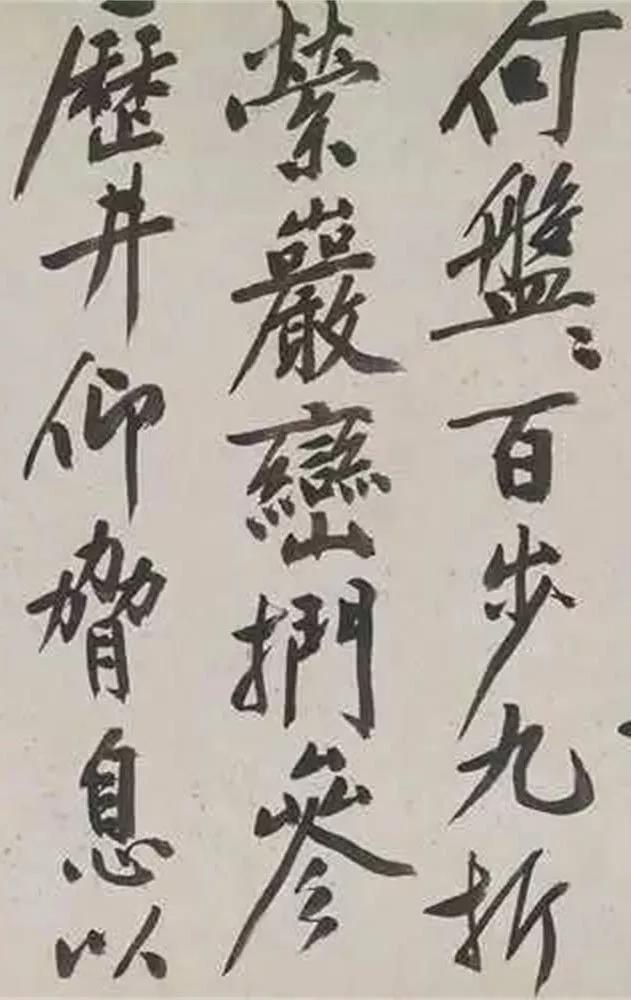 何盤〻百步九折
縈巖巒捫參
歷井仰脅息以